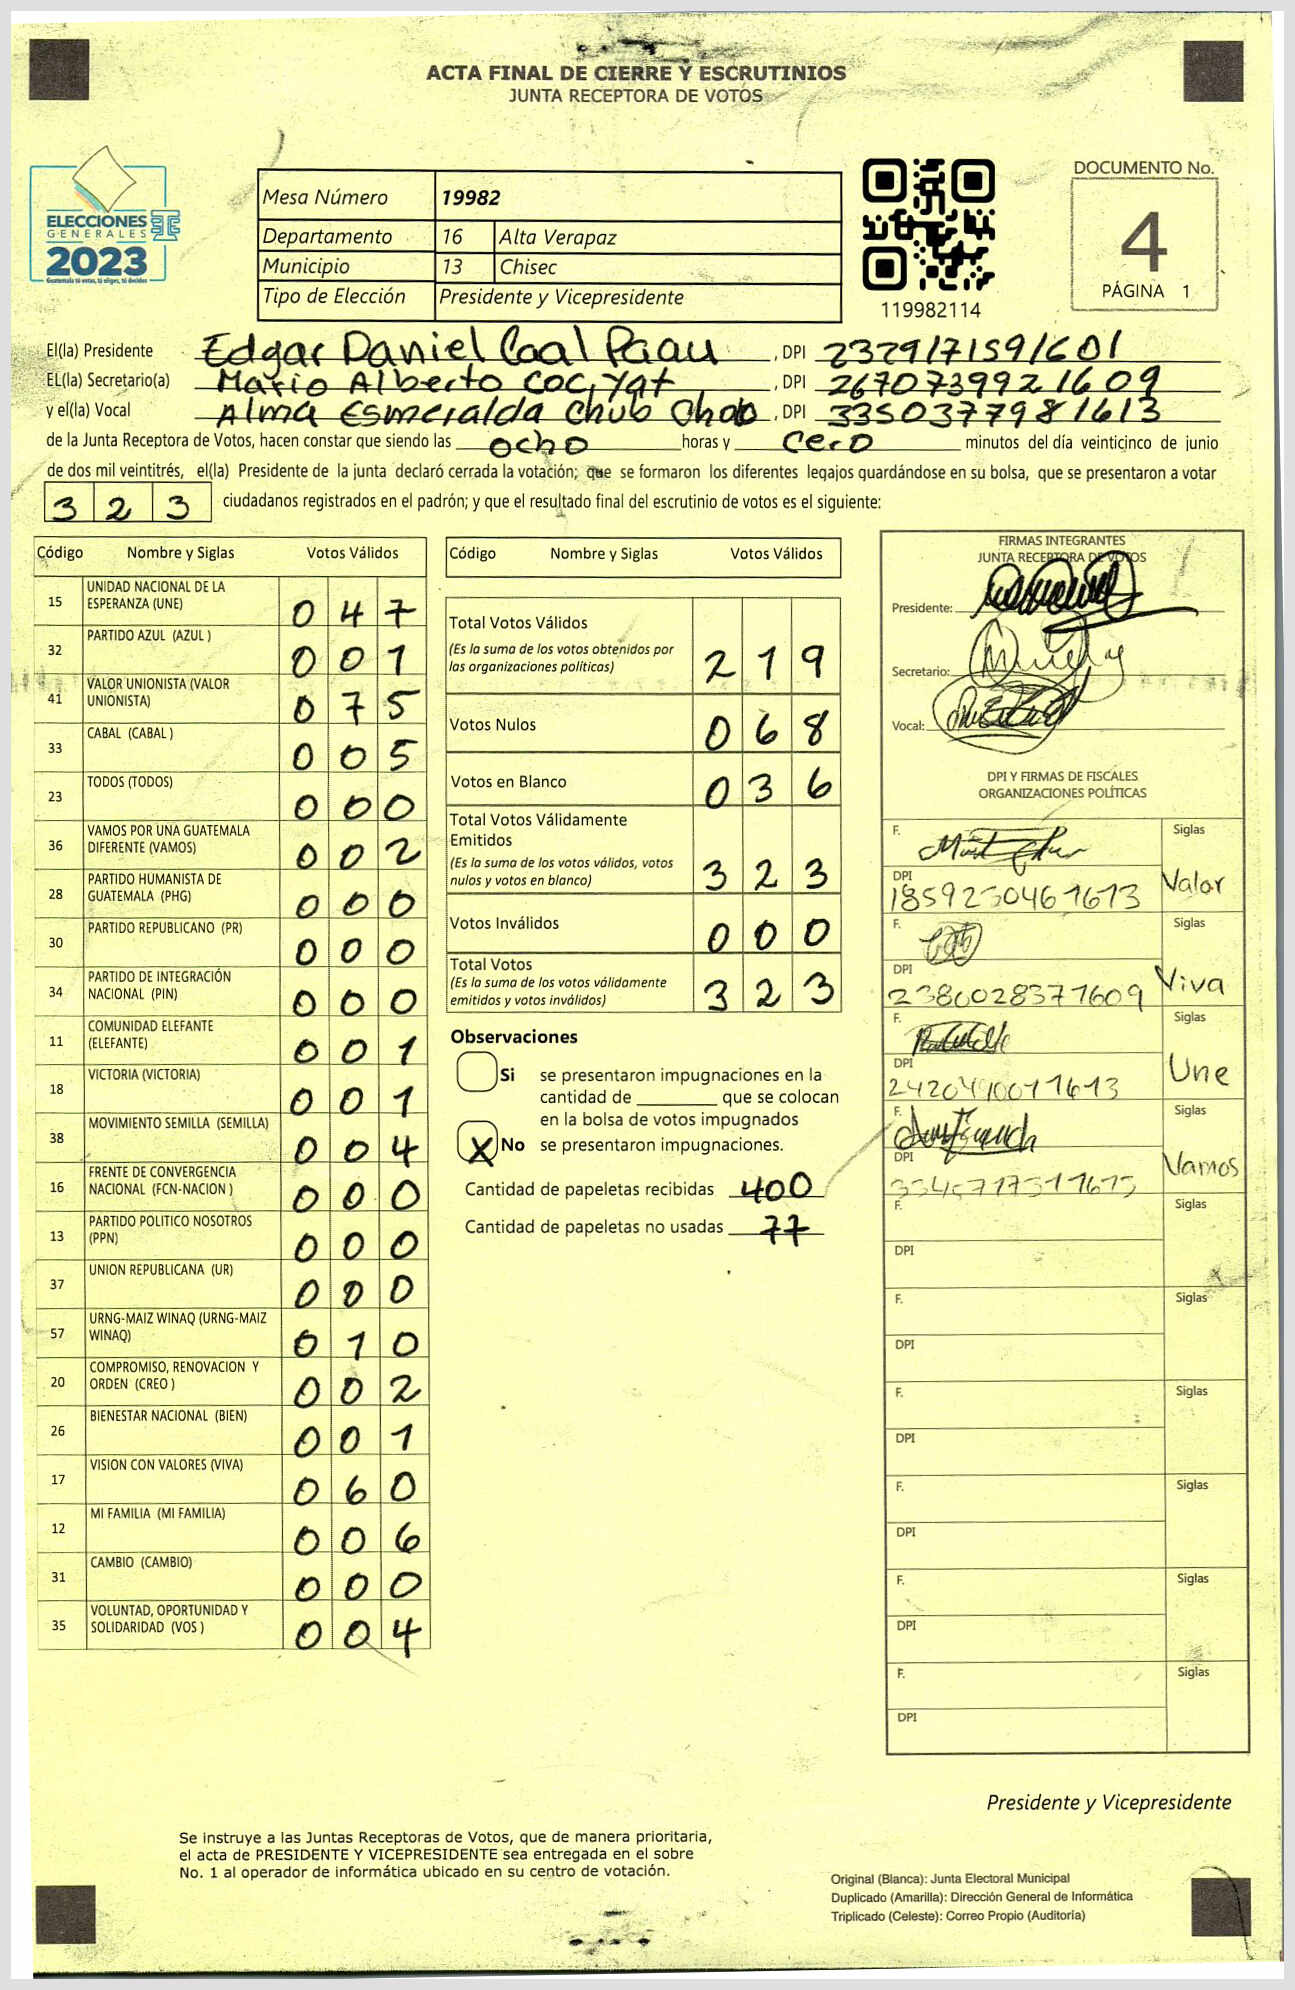 ACTA FINAL DE CIERRE Y ESCRUTINIOS
JUNTA RECEPTORA DE VOTOS
ELECCIONES
GENERALES
2023
Guatemala tú votas, tú eliges, tú decides
Mesa Número 19982
Departamento 16 Alta Verapaz
Municipio 13 Chisec
Tipo de Elección Presidente y Vicepresidente
119982114
DOCUMENTO No.
4
PÁGINA 1
El(la) Presidente Edgar Daniel Caal Paau , DPI 2329171591601
EL(la) Secretario(a) Mario Alberto Coc Yat , DPI 2670739921609
y el(la) Vocal Alma Esmeralda Chub Chob , DPI 3350377981613
de la Junta Receptora de Votos, hacen constar que siendo las ocho horas y cero minutos del día veinticinco de junio
de dos mil veintitrés, el(la) Presidente de la junta declaró cerrada la votación; que se formaron los diferentes legajos guardándose en su bolsa, que se presentaron a votar
323 ciudadanos registrados en el padrón; y que el resultado final del escrutinio de votos es el siguiente:
Código Nombre y Siglas Votos Válidos
15 UNIDAD NACIONAL DE LA ESPERANZA (UNE) 047
32 PARTIDO AZUL (AZUL ) 001
41 VALOR UNIONISTA (VALOR UNIONISTA) 075
33 CABAL (CABAL ) 005
23 TODOS (TODOS) 000
36 VAMOS POR UNA GUATEMALA DIFERENTE (VAMOS) 002
28 PARTIDO HUMANISTA DE GUATEMALA (PHG) 000
30 PARTIDO REPUBLICANO (PR) 000
34 PARTIDO DE INTEGRACIÓN NACIONAL (PIN) 000
11 COMUNIDAD ELEFANTE (ELEFANTE) 001
18 VICTORIA (VICTORIA) 001
38 MOVIMIENTO SEMILLA (SEMILLA) 004
16 FRENTE DE CONVERGENCIA NACIONAL (FCN-NACION ) 000
13 PARTIDO POLITICO NOSOTROS (PPN) 000
37 UNION REPUBLICANA (UR) 000
57 URNG-MAIZ WINAQ (URNG-MAIZ WINAQ) 010
20 COMPROMISO, RENOVACION Y ORDEN (CREO ) 002
26 BIENESTAR NACIONAL (BIEN) 001
17 VISION CON VALORES (VIVA) 060
12 MI FAMILIA (MI FAMILIA) 006
31 CAMBIO (CAMBIO) 000
35 VOLUNTAD, OPORTUNIDAD Y SOLIDARIDAD (VOS ) 004
Código Nombre y Siglas Votos Válidos
Total Votos Válidos
(Es la suma de los votos obtenidos por
las organizaciones políticas) 219
Votos Nulos 068
Votos en Blanco 036
Total Votos Válidamente
Emitidos
(Es la suma de los votos válidos, votos
nulos y votos en blanco) 323
Votos Inválidos 000
Total Votos
(Es la suma de los votos válidamente
emitidos y votos inválidos) 323
Observaciones
Si se presentaron impugnaciones en la
cantidad de ________ que se colocan
en la bolsa de votos impugnados
X No se presentaron impugnaciones.
Cantidad de papeletas recibidas 400
Cantidad de papeletas no usadas 77
FIRMAS INTEGRANTES
JUNTA RECEPTORA DE VOTOS
Presidente:
Secretario:
Vocal:
DPI Y FIRMAS DE FISCALES
ORGANIZACIONES POLÍTICAS
F. Siglas
DPI Valor
1859230461613
F. Siglas
DPI Viva
2380028371609
F. Siglas
DPI Une
2420490011613
F. Siglas
DPI Vamos
F. Siglas
DPI
F. Siglas
DPI
F. Siglas
DPI
F. Siglas
DPI
F. Siglas
DPI
F. Siglas
DPI
Presidente y Vicepresidente
Se instruye a las Juntas Receptoras de Votos, que de manera prioritaria,
el acta de PRESIDENTE Y VICEPRESIDENTE sea entregada en el sobre
No. 1 al operador de informática ubicado en su centro de votación.
Original (Blanca): Junta Electoral Municipal
Duplicado (Amarilla): Dirección General de Informática
Triplicado (Celeste): Correo Propio (Auditoría)